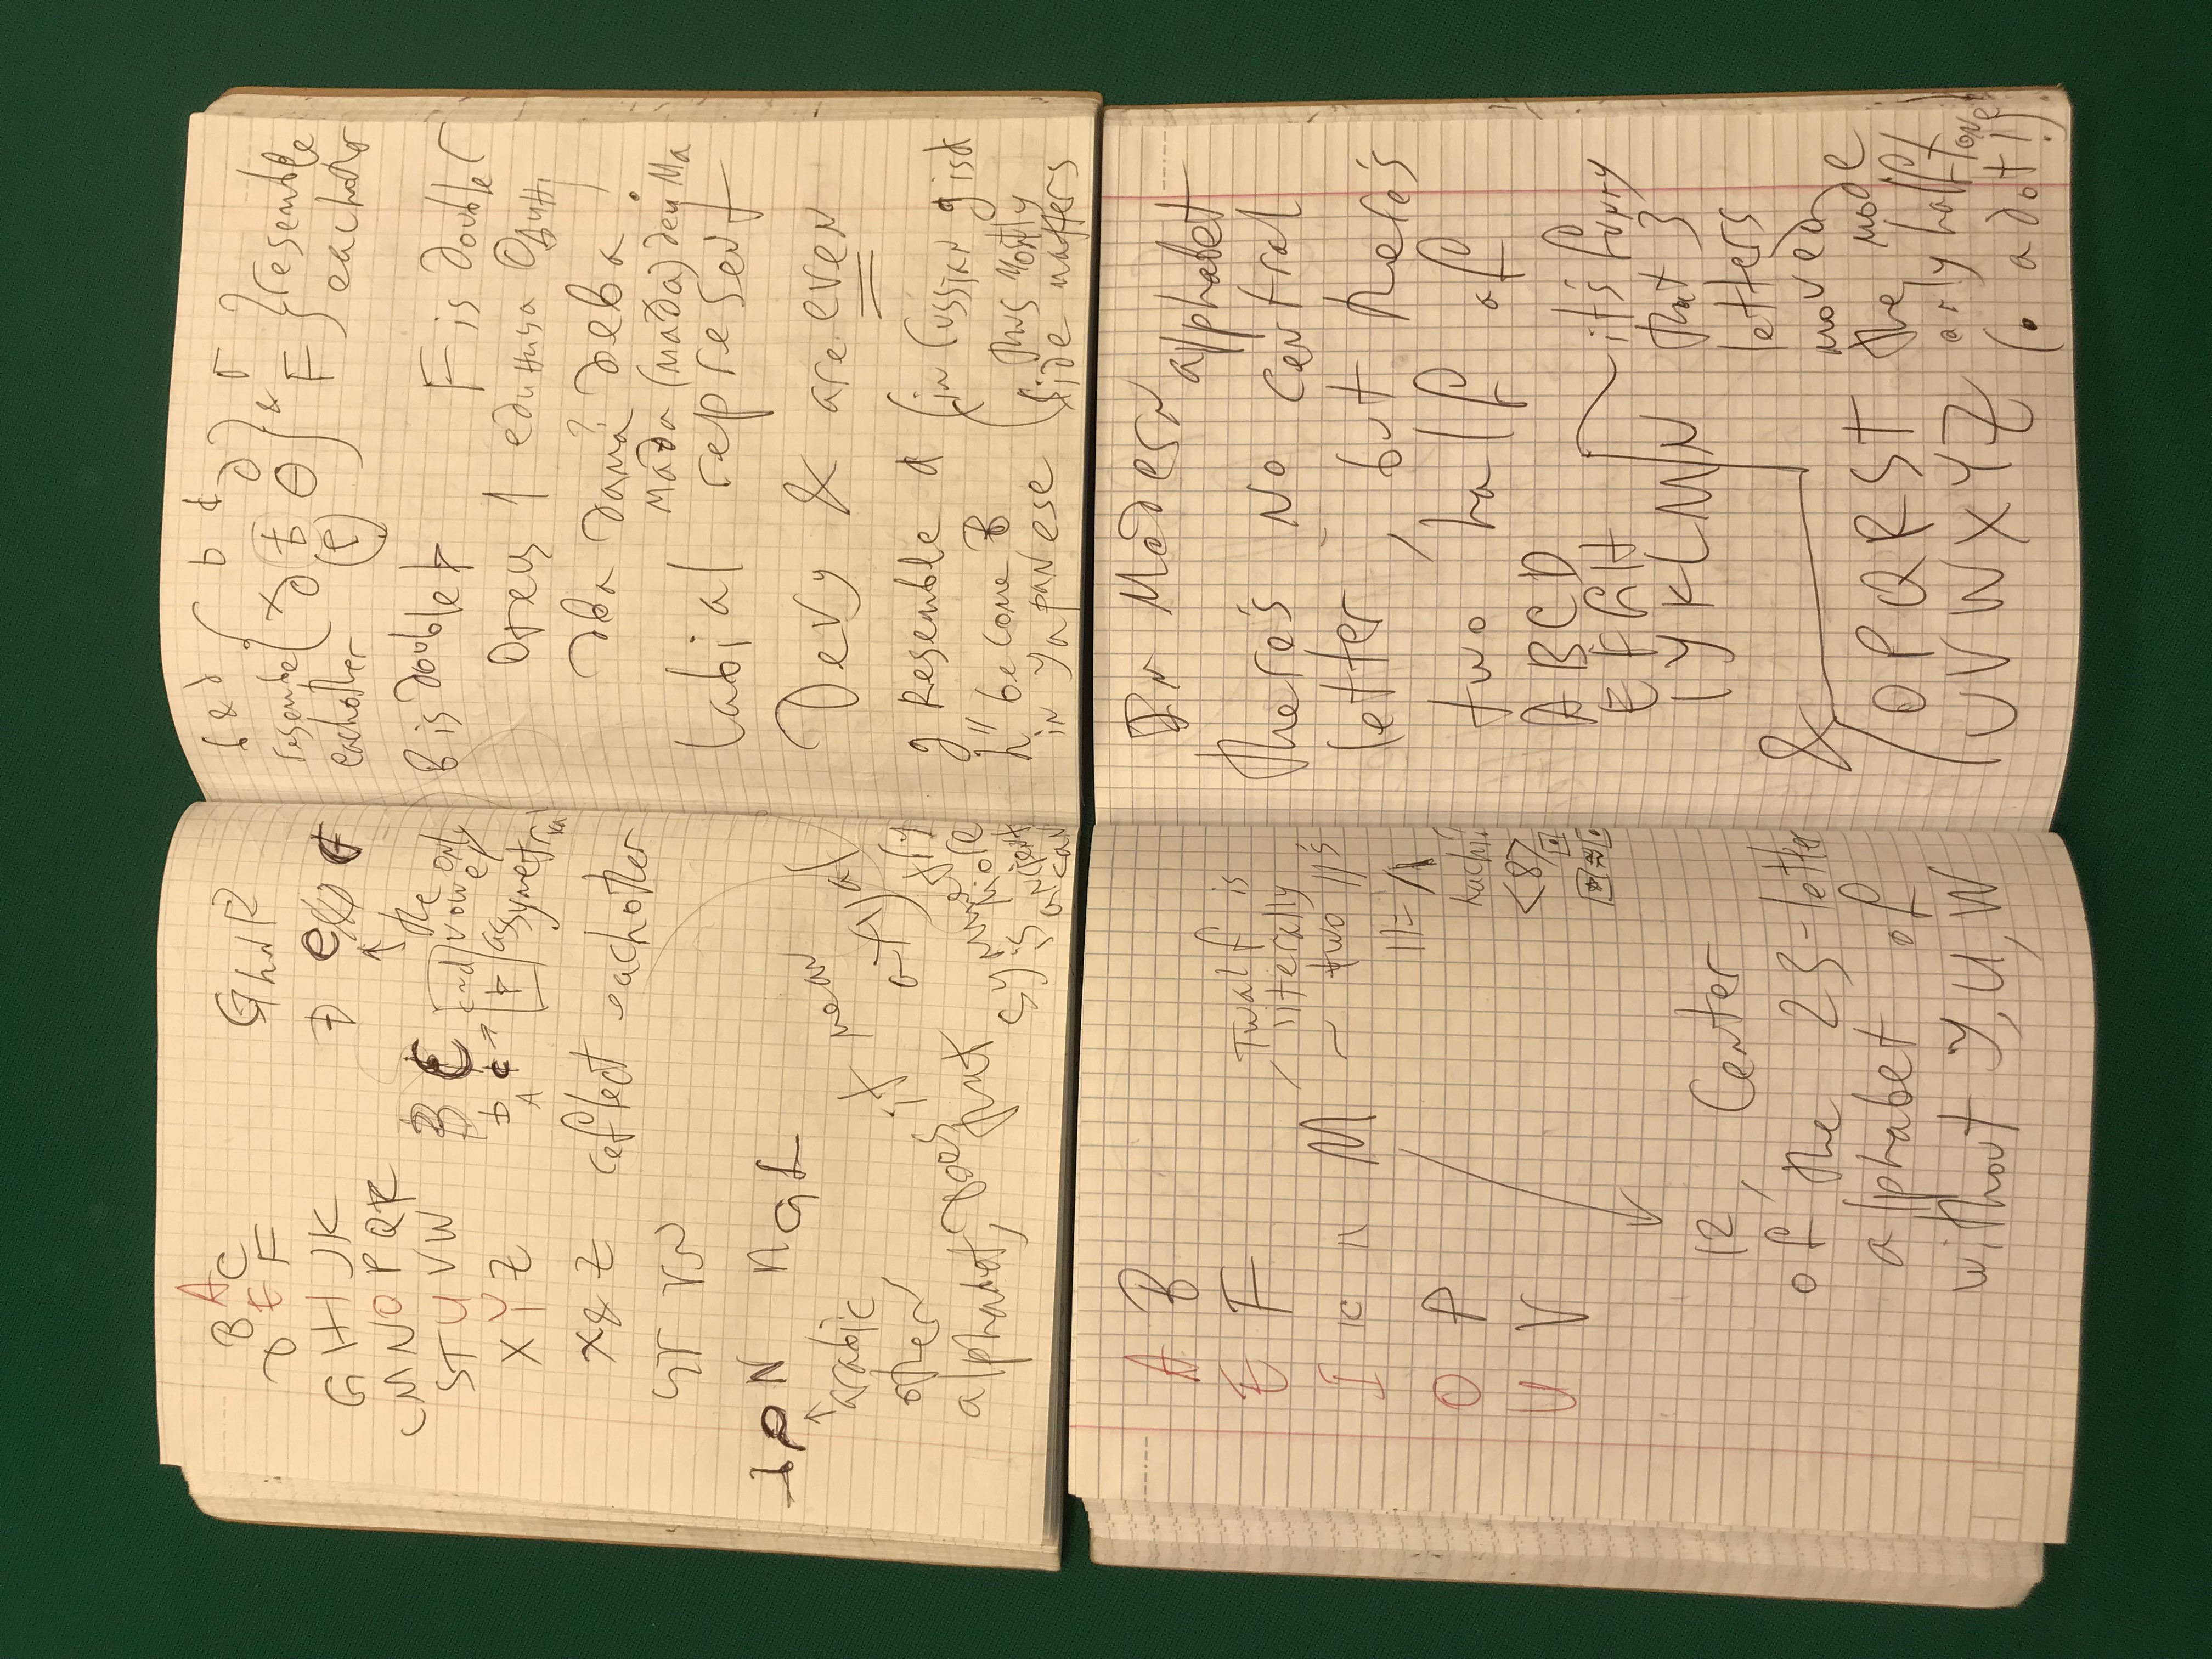 A
B C
D E F
G H I J K
L M N O P Q R
S T U V W
X Y Z
X & Z reflect eachother
ST VW
arabic
other
alphabet, Does it mean
that axyal
symmetry
is more
ancient
can
G h N R
e
the only
vowel
assymetrical
b & d
resembe
eachother
&
Γ
F
resemble
eachother
B is double
F is double Γ
Отец 1 единица Один!
два дама? дева!
мада (мада) ден Ма
labial represent
Devy & are even
g Resemble d (in russian g is d
h" become B
in Yapanese
thus mostly
side matters
A B
E F
I K N M
O P
U V
Twalf is
literally
two 11's
11= Λ
<8>
12, Center
of the 23-letter
alphabet of
without Y, U, W
In Modern alphabet
there's no central
letter, but there's
two half of
A B C D
E F G H
I Y K L M N
&
O P Q R S T
U V W X Y Z
it's funny
that 3
letters
moved
the mode
only halftone
(. a dot!)